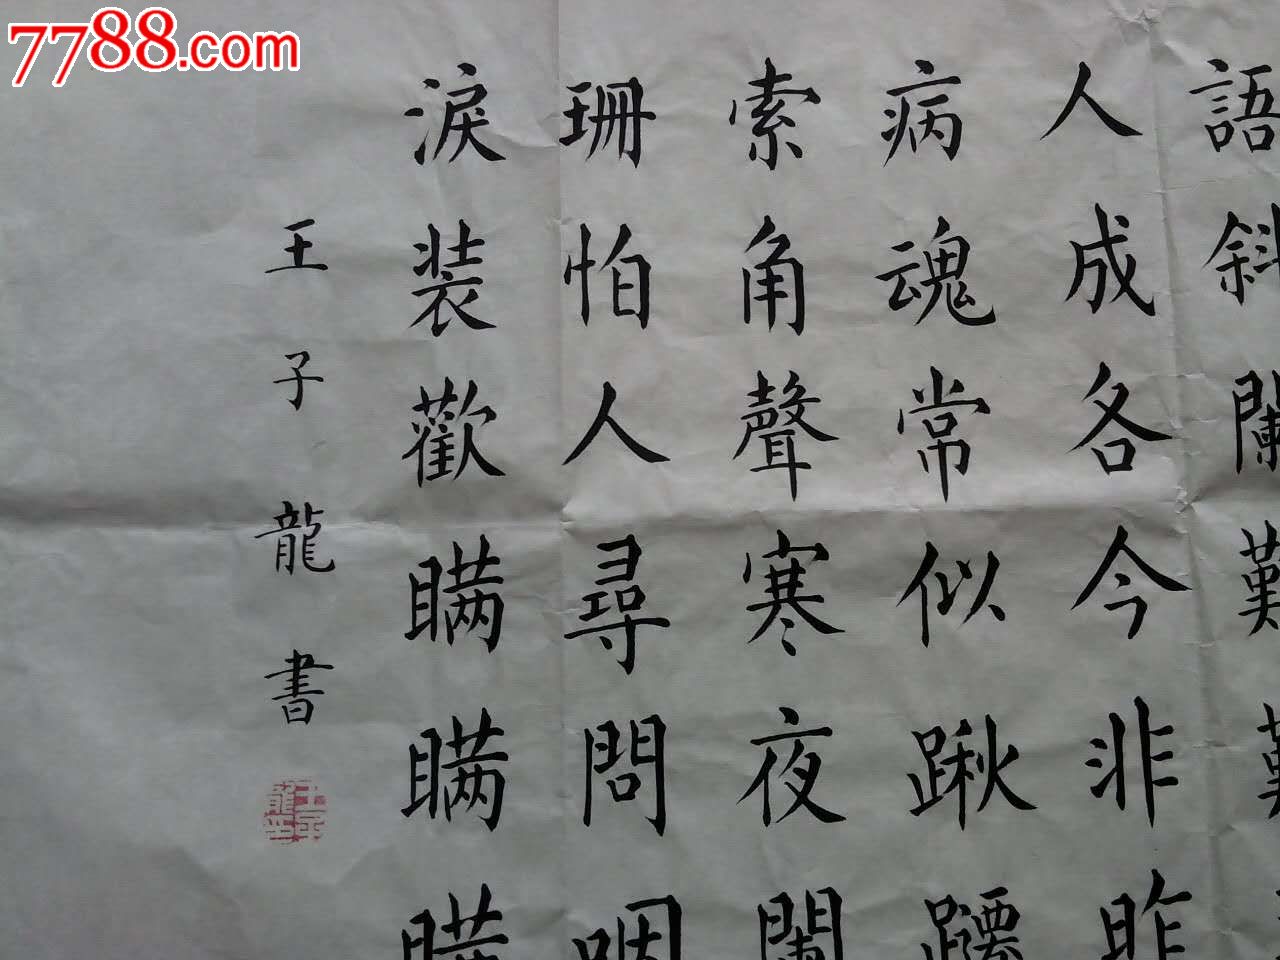 7788.com
語斜闌難難
人成各今非昨
病魂常似鞦韆
索角聲寒夜闌
珊怕人尋問咽
淚装歡瞞瞞瞞
王子龍書